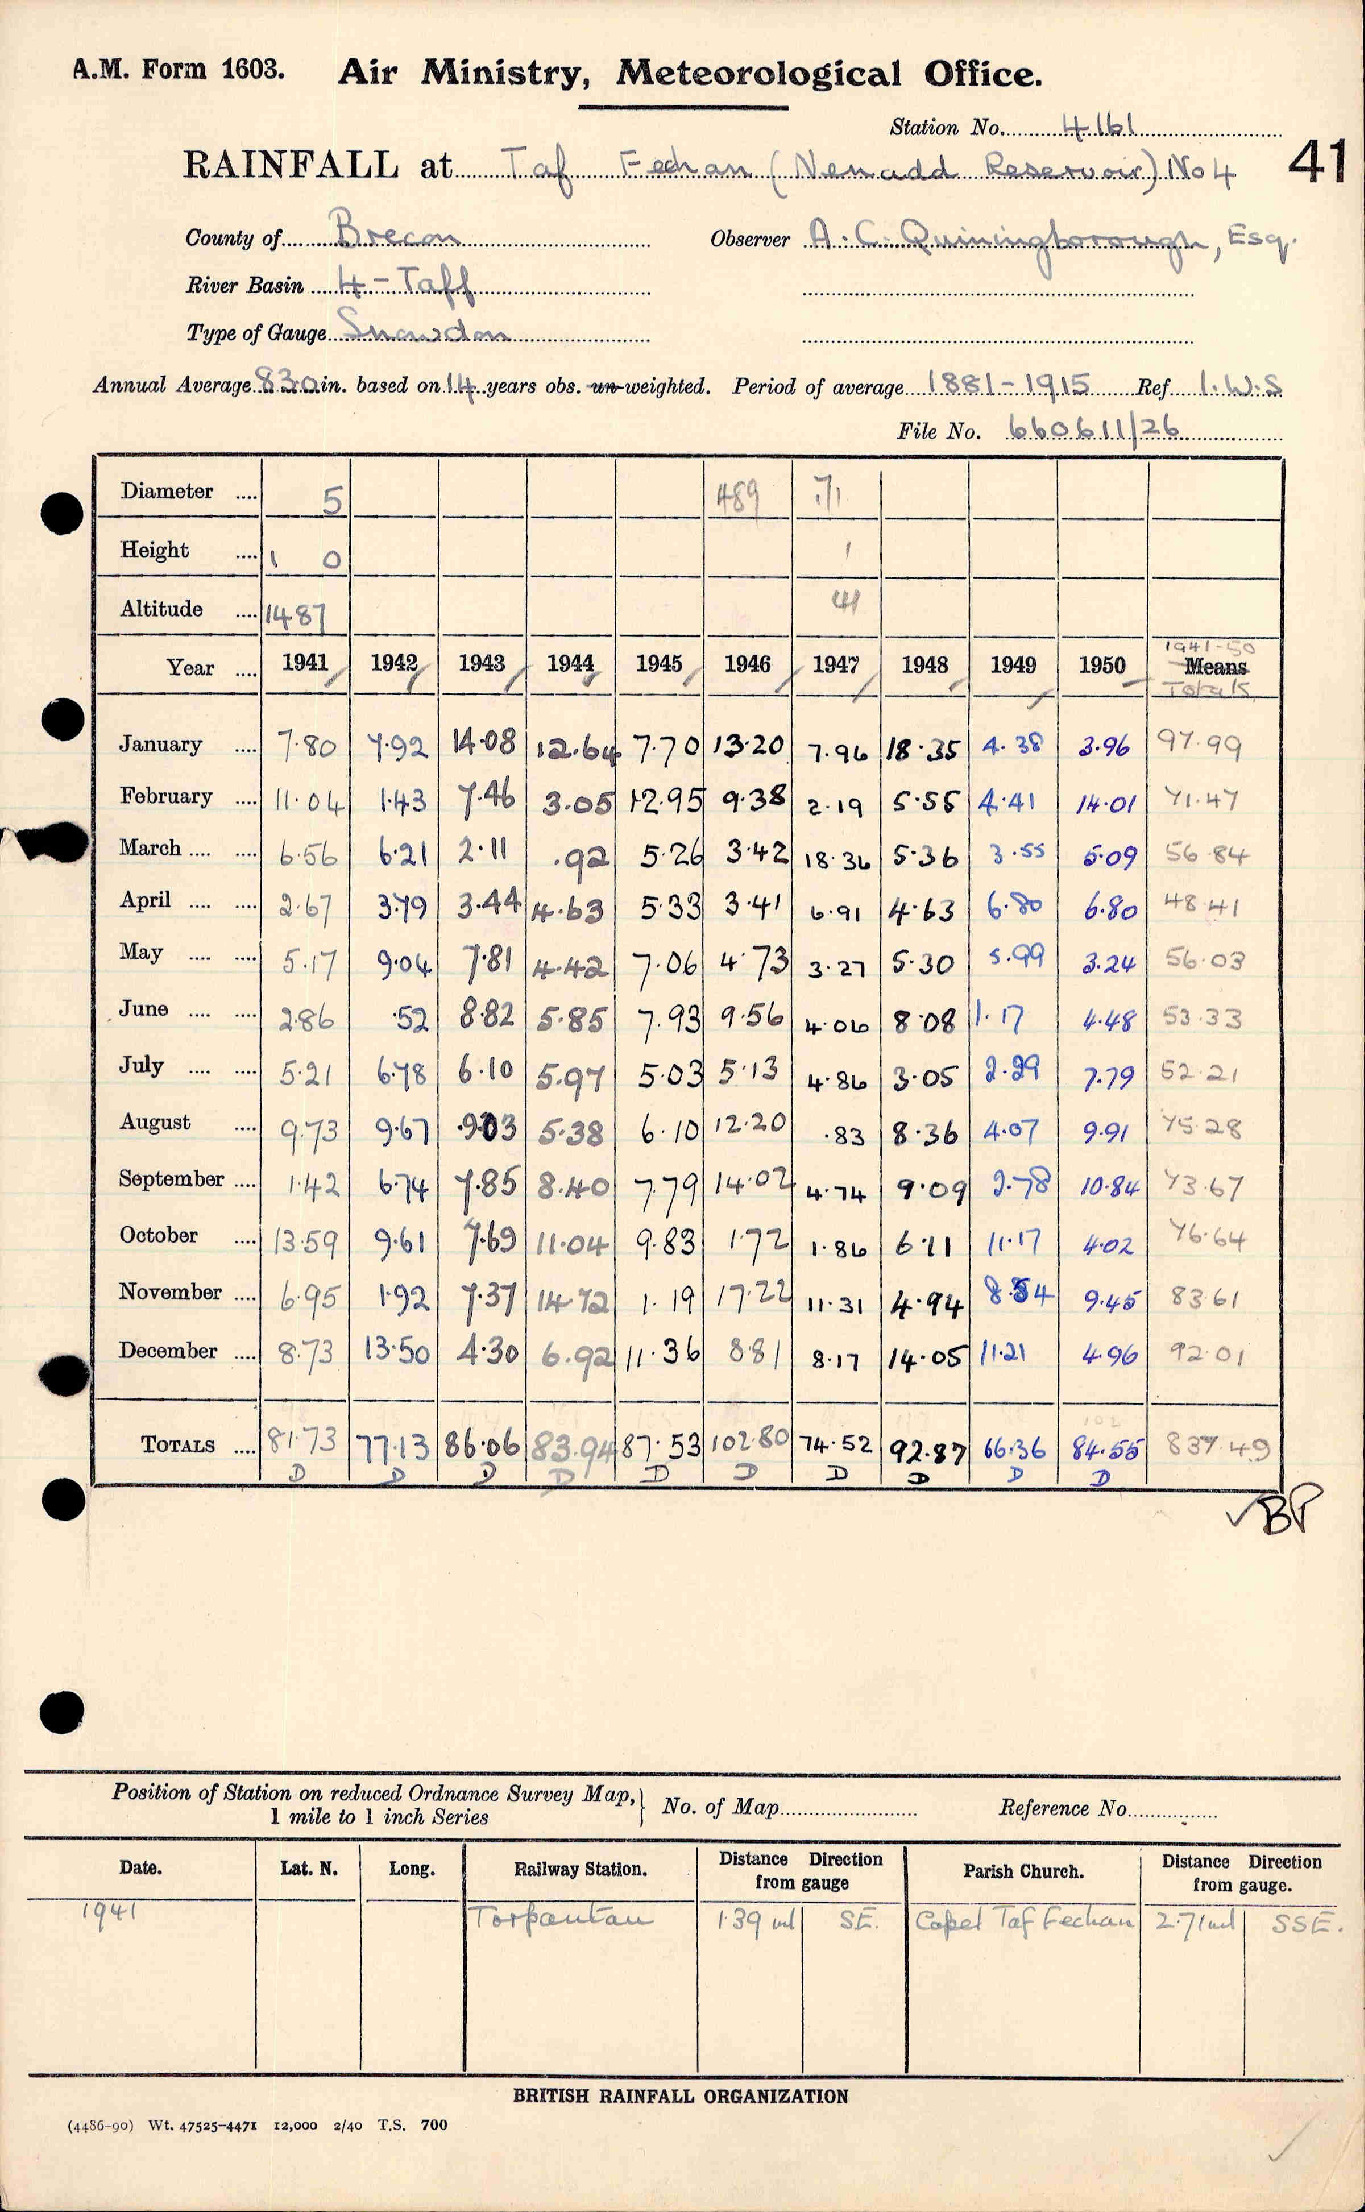 A.M. Form 1603. Air Ministry, Meteorological Office.
Station No. 4161
RAINFALL at Taf Fechan (Nenadd Reservoir) No 4 41
County of Brecon Observer A. C. Quiningborough, Esq.
River Basin 4 - Taff
Type of Gauge Snowdon
Annual Average 83.0 in. based on 14 years obs. un-weighted. Period of average 1881-1915 Ref I.W.S
File No. 660611/26
Diameter .... 5 489 .71
Height .... 1 0 1
Altitude .... 1487 41
1941-50
Year .... 1941 1942 1943 1944 1945 1946 1947 1948 1949 1950 Means
Totals
January .... 7.80 7.92 14.08 12.64 7.70 13.20 7.96 18.35 4.38 3.96 97.99
February .... 11.04 1.43 7.46 3.05 12.95 9.38 2.19 5.55 4.41 14.01 71.47
March .... .... 6.56 6.21 2.11 .92 5.26 3.42 18.36 5.36 3.55 5.09 56.84
April .... .... 2.67 3.79 3.44 4.63 5.33 3.41 6.91 4.63 6.80 6.80 48.41
May .... .... 5.17 9.04 7.81 4.42 7.06 4.73 3.27 5.30 5.99 3.24 56.03
June .... .... 2.86 .52 8.82 5.85 7.93 9.56 4.06 8.08 1.17 4.48 53.33
July .... .... 5.21 6.78 6.10 5.97 5.03 5.13 4.86 3.05 2.29 7.79 52.21
August .... 9.73 9.67 9.03 5.38 6.10 12.20 .83 8.36 4.07 9.91 75.28
September .... 1.42 6.74 7.85 8.40 7.79 14.02 4.74 9.09 2.78 10.84 73.67
October .... 13.59 9.61 7.69 11.04 9.83 1.72 1.86 6.11 11.17 4.02 76.64
November .... 6.95 1.92 7.37 14.72 1.19 17.22 11.31 4.94 8.54 9.45 83.61
December .... 8.73 13.50 4.30 6.92 11.36 8.81 8.17 14.05 11.21 4.96 92.01
TOTALS .... 81.73 77.13 86.06 83.94 87.53 102.80 74.52 92.87 66.36 84.55 837.49
D D D D D D D D D D
✓BP
Position of Station on reduced Ordnance Survey Map, 1 mile to 1 inch Series } No. of Map Reference No.
Date. Lat. N. Long. Railway Station. Distance Direction from gauge Parish Church. Distance Direction from gauge.
1941 Torpantau 1.39 ml SE. Capel Taf Fechan 2.71 ml SSE.
BRITISH RAINFALL ORGANIZATION
(4486-90) Wt. 47525-4471 12,000 2/40 T.S. 700